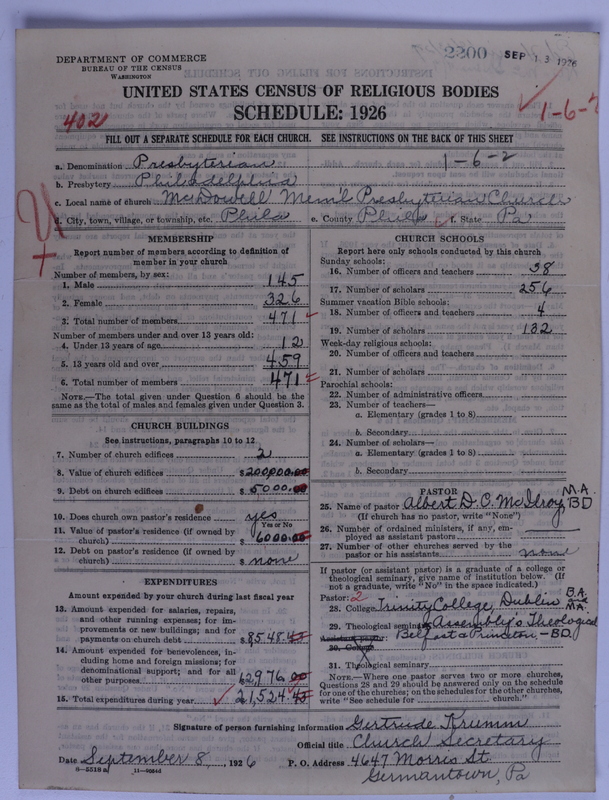 2200 SEP 13 1926
DEPARTMENT OF COMMERCE
BUREAU OF THE CENSUS
WASHINGTON
UNITED STATES CENSUS OF RELIGIOUS BODIES
SCHEDULE: 1926
402
1-6-2
FILL OUT A SEPARATE SCHEDULE FOR EACH CHURCH. SEE INSTRUCTIONS ON THE BACK OF THIS SHEET
a. Denomination Presbyterian 1-6-2
b. Presbytery Philadelphia
c. Local name of church McDowell Mem'l Presbyterian Church
d. City, town, village, or township, etc. Phila e. County Phila f. State Pa
MEMBERSHIP
Report number of members according to definition of
member in your church
Number of members, by sex:
1. Male 145
2. Female 326
3. Total number of members 471
Number of members under and over 13 years old:
4. Under 13 years of age 12
5. 13 years old and over 459
6. Total number of members 471
NOTE.—The total given under Question 6 should be the
same as the total of males and females given under Question 3.
CHURCH BUILDINGS
See instructions, paragraphs 10 to 12
7. Number of church edifices 2
8. Value of church edifices $200,000.00
9. Debt on church edifices $5000.00
10. Does church own pastor's residence yes
Yes or No
11. Value of pastor's residence (if owned by
church) $6000.00
12. Debt on pastor's residence (if owned by
church) $ none
EXPENDITURES
Amount expended by your church during last fiscal year
13. Amount expended for salaries, repairs,
and other running expenses; for im-
provements or new buildings; and for
payments on church debt $8548.45
14. Amount expended for benevolences, in-
cluding home and foreign missions; for
denominational support; and for all
other purposes 12976.00
15. Total expenditures during year 21,524.45
CHURCH SCHOOLS
Report here only schools conducted by this church
Sunday schools:
16. Number of officers and teachers 38
17. Number of scholars 256
Summer vacation Bible schools:
18. Number of officers and teachers 4
19. Number of scholars 132
Week-day religious schools:
20. Number of officers and teachers
21. Number of scholars
Parochial schools:
22. Number of administrative officers
23. Number of teachers—
a. Elementary (grades 1 to 8)
b. Secondary
24. Number of scholars—
a. Elementary (grades 1 to 8)
b. Secondary
PASTOR
25. Name of pastor Albert D. C. McIlroy M.A. BD
(If church has no pastor, write "None")
26. Number of ordained ministers, if any, em-
ployed as assistant pastors
27. Number of other churches served by the
pastor or his assistants none
If pastor (or assistant pastor) is a graduate of a college or
theological seminary, give name of institution below. (If
not a graduate, write "No" in the space indicated.)
Pastor: 2
28. College Trinity College, Dublin B.A. M.A.
29. Theological seminary Assembly's Theological
Assistant pastor: Belfast & Princeton, - BD.
30. College
31. Theological seminary
NOTE.—Where one pastor serves two or more churches,
Questions 28 and 29 should be answered only on the schedule
for one of the churches; on the schedules for the other churches,
write "See schedule for church."
Signature of person furnishing information Gertrude Krumm
Official title Church Secretary
Date September 8, 1926 P. O. Address 4647 Morris St.
8-5518 a 11-9084d Germantown, Pa